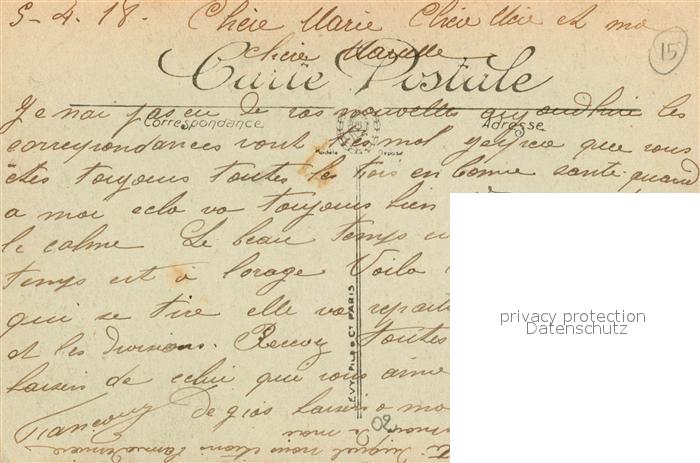 5-4.18. Chère Marie Chère Mère et ma
chère Marcelle
15
Carte Postale
Je n'ai pas eu de vos nouvelles aujourd'hui les
Correspondance
Adresse
correspondances vont très mal j'espère que vous
êtes toujours toutes les trois en bonne santé quand
a moi cela va toujours bien
le calme Le beau temps
temps est à lorage Voila
qui se tire elle va
et les divisions. Recevez toutes
baisers de celui qui vous aime
de gros baisers a ma
LEVY FILS & Cie PARIS
02
privacy protection
Datenschutz